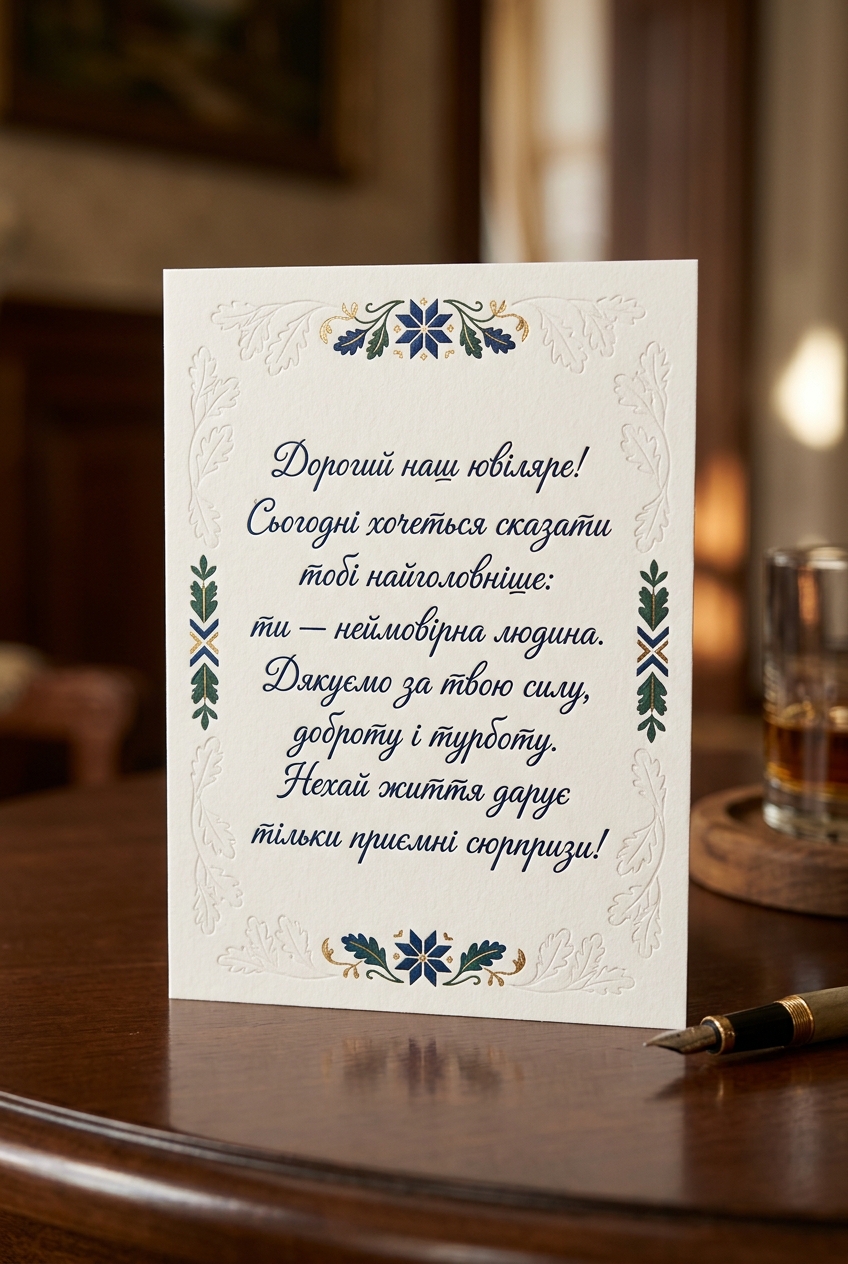 Дорогий наш ювіляре!
Сьогодні хочеться сказати
тобі найголовніше:
ти — неймовірна людина.
Дякуємо за твою силу,
доброту і турботу.
Нехай життя дарує
тільки приємні сюрпризи!